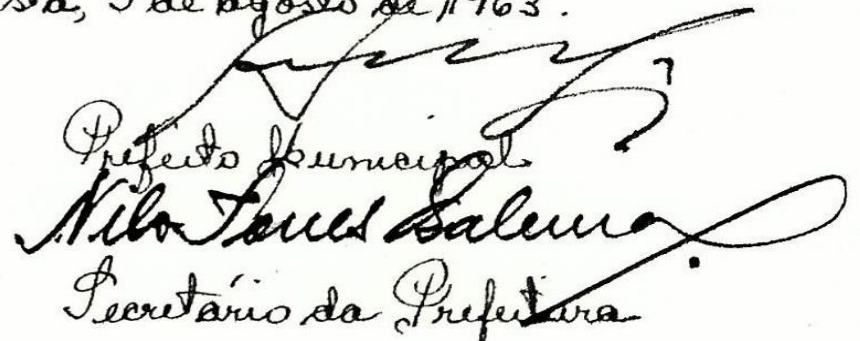 5 de agosto de 1963.
Prefeito Municipal
Nilo Torres Salema
Secretário da Prefeitura